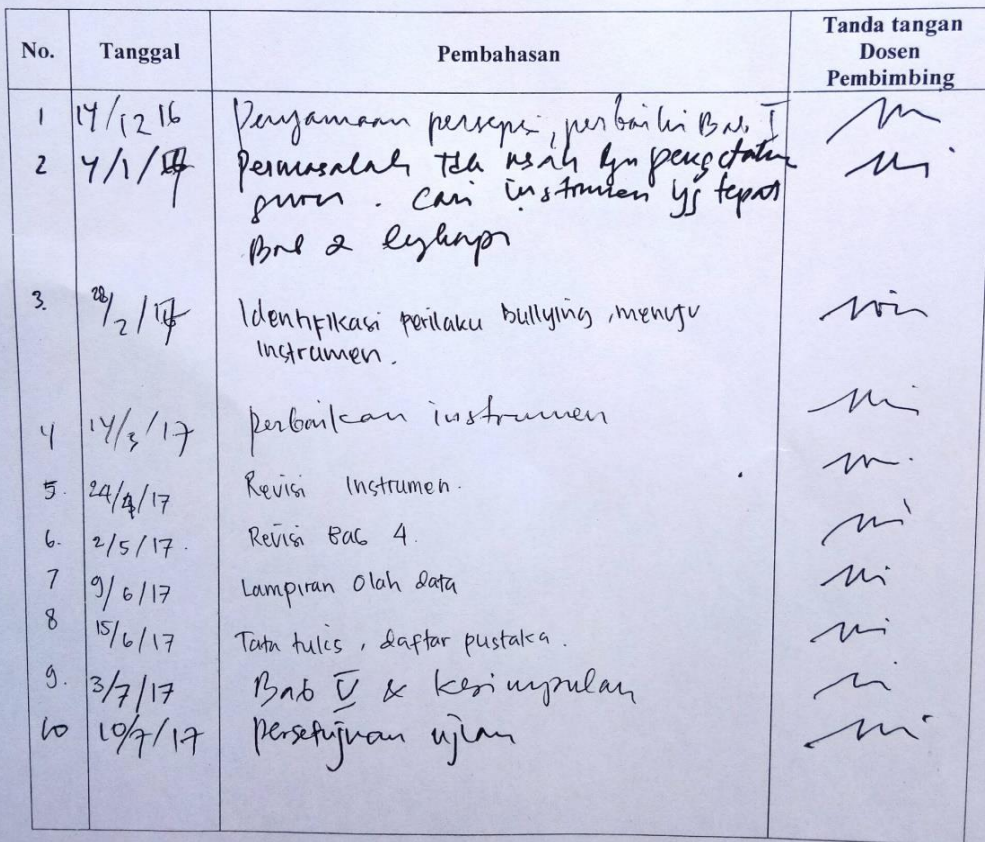 No. Tanggal Pembahasan Tanda tangan Dosen Pembimbing
1 14/12 16 Penyamaan persepsi, perbaiki Bab I
2 4/1/17 Permasalah tdk usah dgn pengetahu
guru. Cari instrumen yg tepat
Bab 2 lengkapi
3. 28/2/17 Identifikasi perilaku bullying, menuju
Instrumen.
4 14/3/17 perbaikan instrumen
5. 24/4/17 Revisi Instrumen.
6. 2/5/17. Revisi Bab 4.
7 9/6/17 Lampiran Olah data
8 15/6/17 Tata tulis, daftar pustaka.
9. 3/7/17 Bab V & kesimpulan
10 10/7/17 Persetujuan ujian